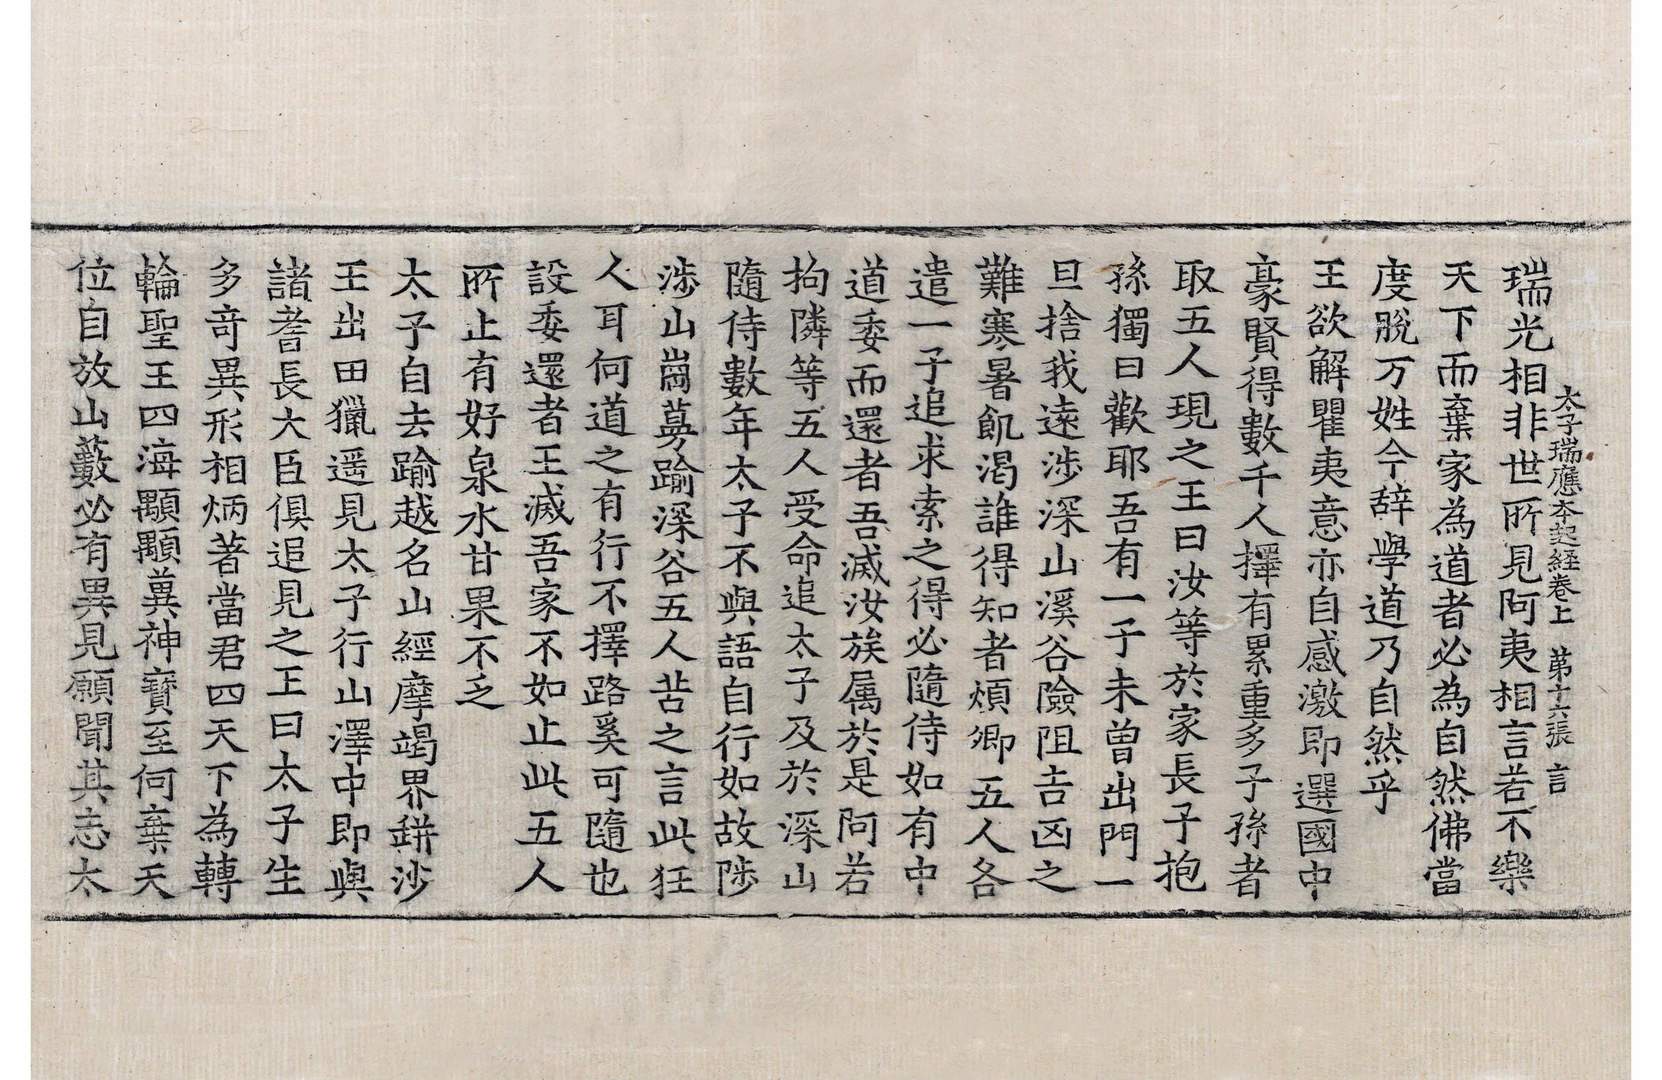 太子瑞應本起経卷上 第十六張 言
瑞光相非世所見阿夷相言若不樂
天下而棄家為道者必為自然佛當
度脫万姓今辞學道乃自然乎
王欲解瞿夷意亦自感激即選國中
豪賢得數千人擇有累重多子孫者
取五人現之王曰汝等於家長子抱
孫獨曰歡耶吾有一子未曾出門一
旦捨我遠涉深山溪谷險阻吉凶之
難寒暑飢渴誰得知者煩卿五人各
遣一子追求索之得必隨侍如有中
道委而還者吾滅汝族属於是阿若
拘隣等五人受命追太子及於深山
隨侍數年太子不與語自行如故陟
涉山崗募踰深谷五人苦之言此狂
人耳何道之有行不擇路奚可隨也
設委還者王滅吾家不如止此五人
所止有好泉水甘果不乏
太子自去踰越名山經摩竭界缾沙
王出田獵遥見太子行山澤中即與
諸耆長大臣俱追見之王曰太子生
多奇異形相炳著當君四天下為轉
輪聖王四海顒顒兾神寶至何棄天
位自放山藪必有異見願聞其志太